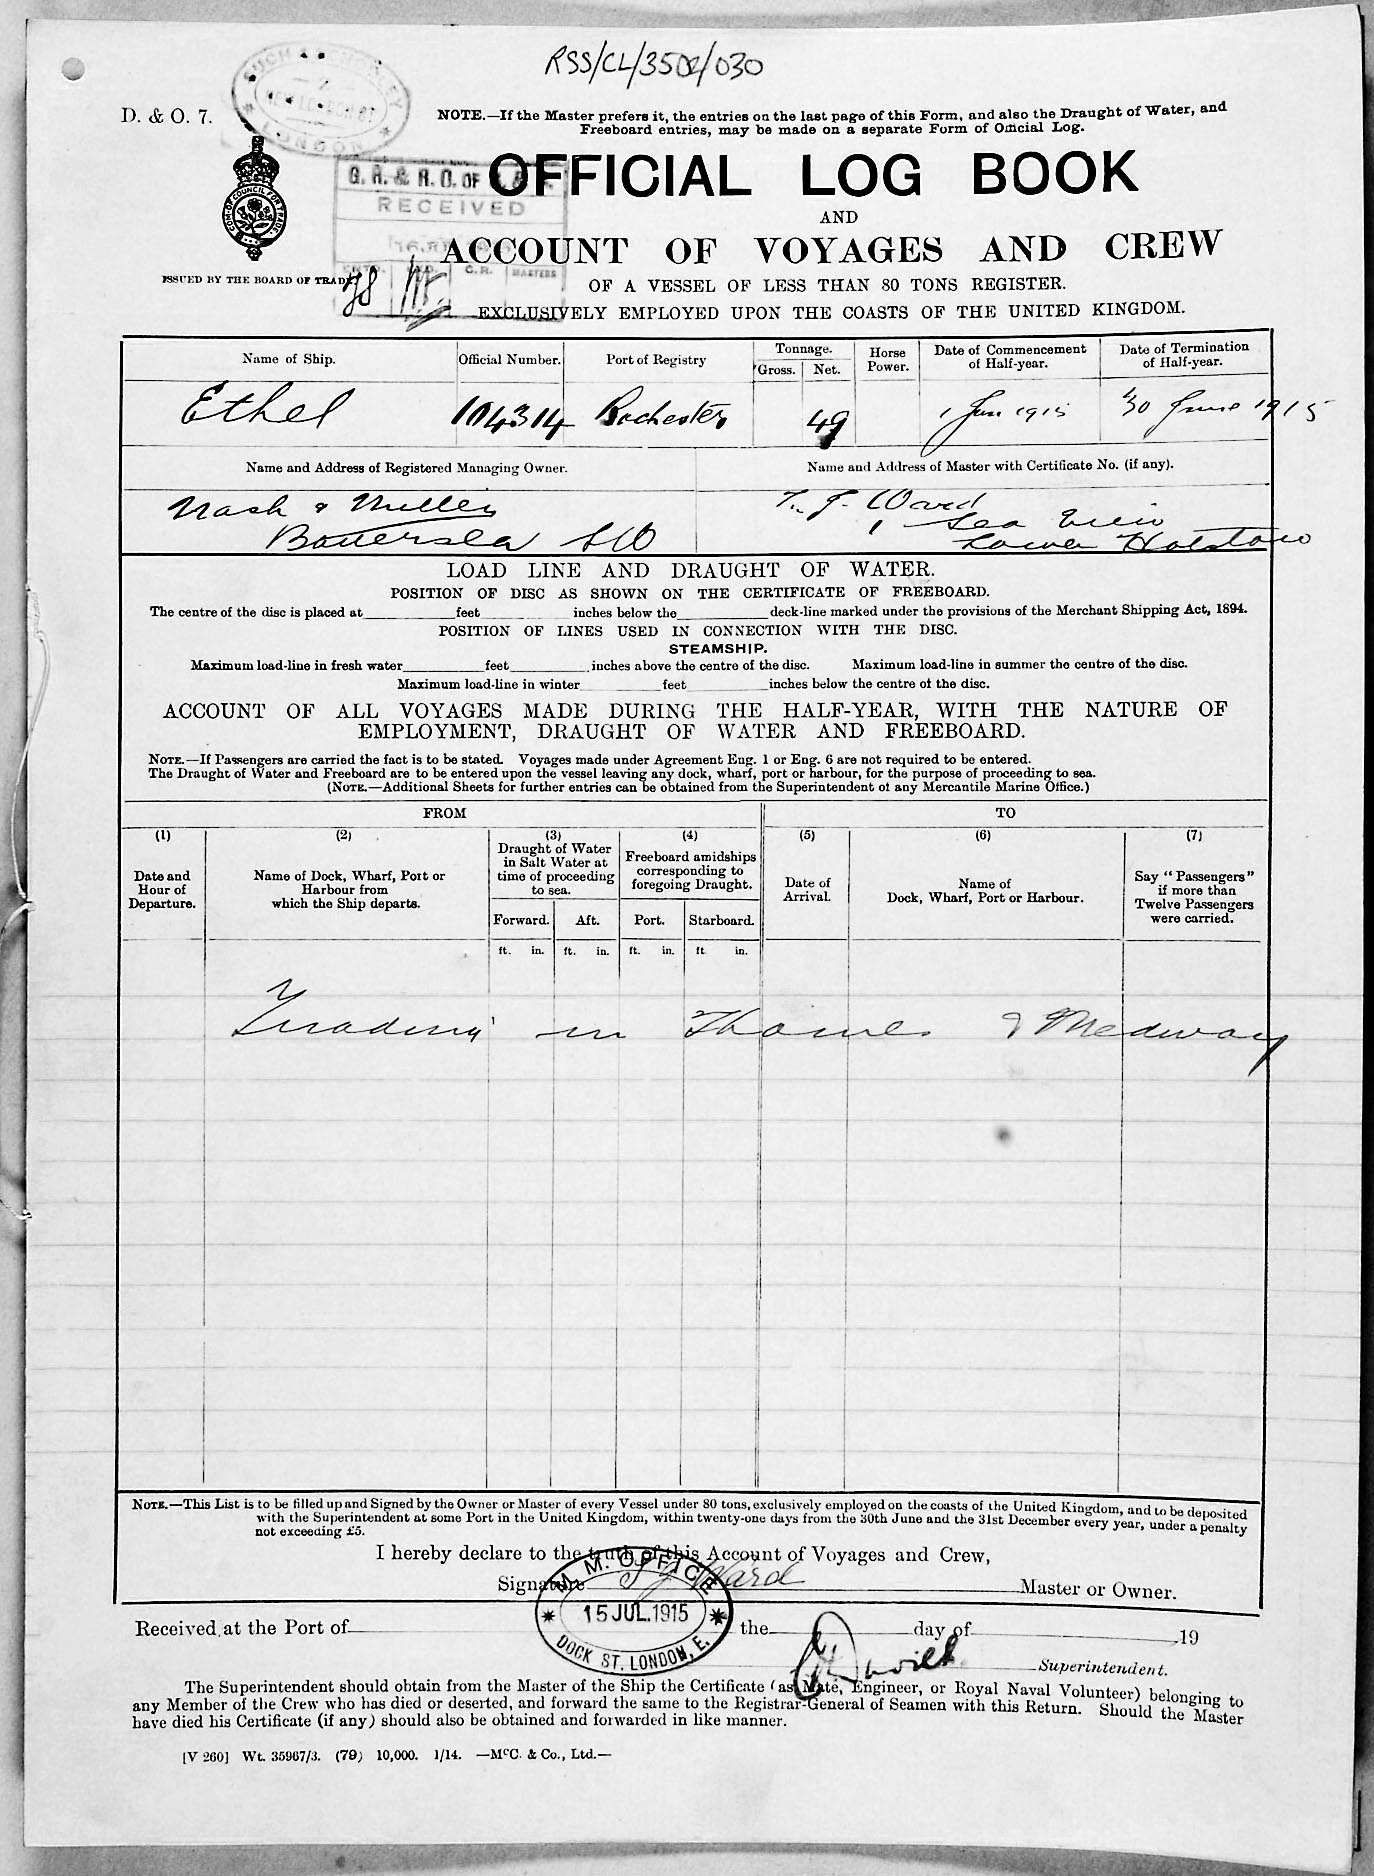 RSS/CL/3502/030
LONDON
D. & O. 7.
NOTE.—If the Master prefers it, the entries on the last page of this Form, and also the Draught of Water, and
Freeboard entries, may be made on a separate Form of Official Log.
G. R. & R. O. OF
RECEIVED
C.R. MASTERS
OFFICIAL LOG BOOK
AND
ACCOUNT OF VOYAGES AND CREW
COM. OF COUNCIL FOR TRADE
ISSUED BY THE BOARD OF TRADE
OF A VESSEL OF LESS THAN 80 TONS REGISTER.
EXCLUSIVELY EMPLOYED UPON THE COASTS OF THE UNITED KINGDOM.
Name of Ship. Official Number. Port of Registry Tonnage. Gross. Net. Horse Power. Date of Commencement of Half-year. Date of Termination of Half-year.
Ethel 104314 Rochester 49 1 Jan 1915 30 June 1915
Name and Address of Registered Managing Owner. Name and Address of Master with Certificate No. (if any).
Nash & Miller J. Ward
Battersea SW 1 Sea View
Lower Halstow
LOAD LINE AND DRAUGHT OF WATER.
POSITION OF DISC AS SHOWN ON THE CERTIFICATE OF FREEBOARD.
The centre of the disc is placed at feet inches below the deck-line marked under the provisions of the Merchant Shipping Act, 1894.
POSITION OF LINES USED IN CONNECTION WITH THE DISC.
STEAMSHIP.
Maximum load-line in fresh water feet inches above the centre of the disc. Maximum load-line in summer the centre of the disc.
Maximum load-line in winter feet inches below the centre of the disc.
ACCOUNT OF ALL VOYAGES MADE DURING THE HALF-YEAR, WITH THE NATURE OF
EMPLOYMENT, DRAUGHT OF WATER AND FREEBOARD.
NOTE.—If Passengers are carried the fact is to be stated. Voyages made under Agreement Eng. 1 or Eng. 6 are not required to be entered.
The Draught of Water and Freeboard are to be entered upon the vessel leaving any dock, wharf, port or harbour, for the purpose of proceeding to sea.
(NOTE.—Additional Sheets for further entries can be obtained from the Superintendent of any Mercantile Marine Office.)
FROM TO
(1) (2) (3) (4) (5) (6) (7)
Date and Hour of Departure.
Name of Dock, Wharf, Port or Harbour from which the Ship departs.
Draught of Water in Salt Water at time of proceeding to sea.
Freeboard amidships corresponding to foregoing Draught.
Date of Arrival.
Name of Dock, Wharf, Port or Harbour.
Say "Passengers" if more than Twelve Passengers were carried.
Forward. Aft. Port. Starboard.
ft. in. ft. in. ft. in. ft. in.
Trading in Thames & Medway
NOTE.—This List is to be filled up and Signed by the Owner or Master of every Vessel under 80 tons, exclusively employed on the coasts of the United Kingdom, and to be deposited
with the Superintendent at some Port in the United Kingdom, within twenty-one days from the 30th June and the 31st December every year, under a penalty
not exceeding £5.
I hereby declare to the truth of this Account of Voyages and Crew,
Signature J Ward Master or Owner.
M. M. OFFICE
15 JUL. 1915
DOCK ST. LONDON, E.
Received at the Port of the day of 19
Superintendent.
The Superintendent should obtain from the Master of the Ship the Certificate (as Mate, Engineer, or Royal Naval Volunteer) belonging to
any Member of the Crew who has died or deserted, and forward the same to the Registrar-General of Seamen with this Return. Should the Master
have died his Certificate (if any) should also be obtained and forwarded in like manner.
[V 260] Wt. 35967/3. (79) 10,000. 1/14. —McC. & Co., Ltd.—